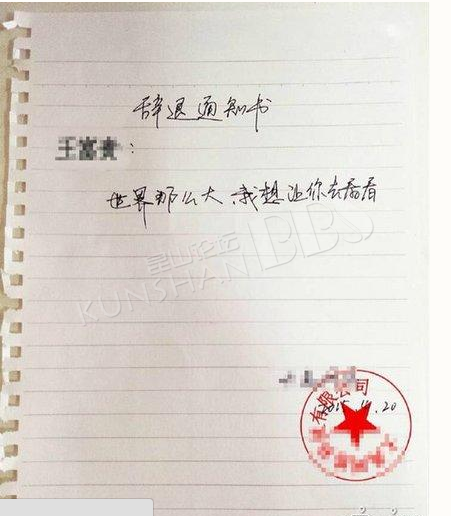 辞退通知书
世界那么大,我想让你去看看
昆山论坛
KUNSHAN BBS
有限公司